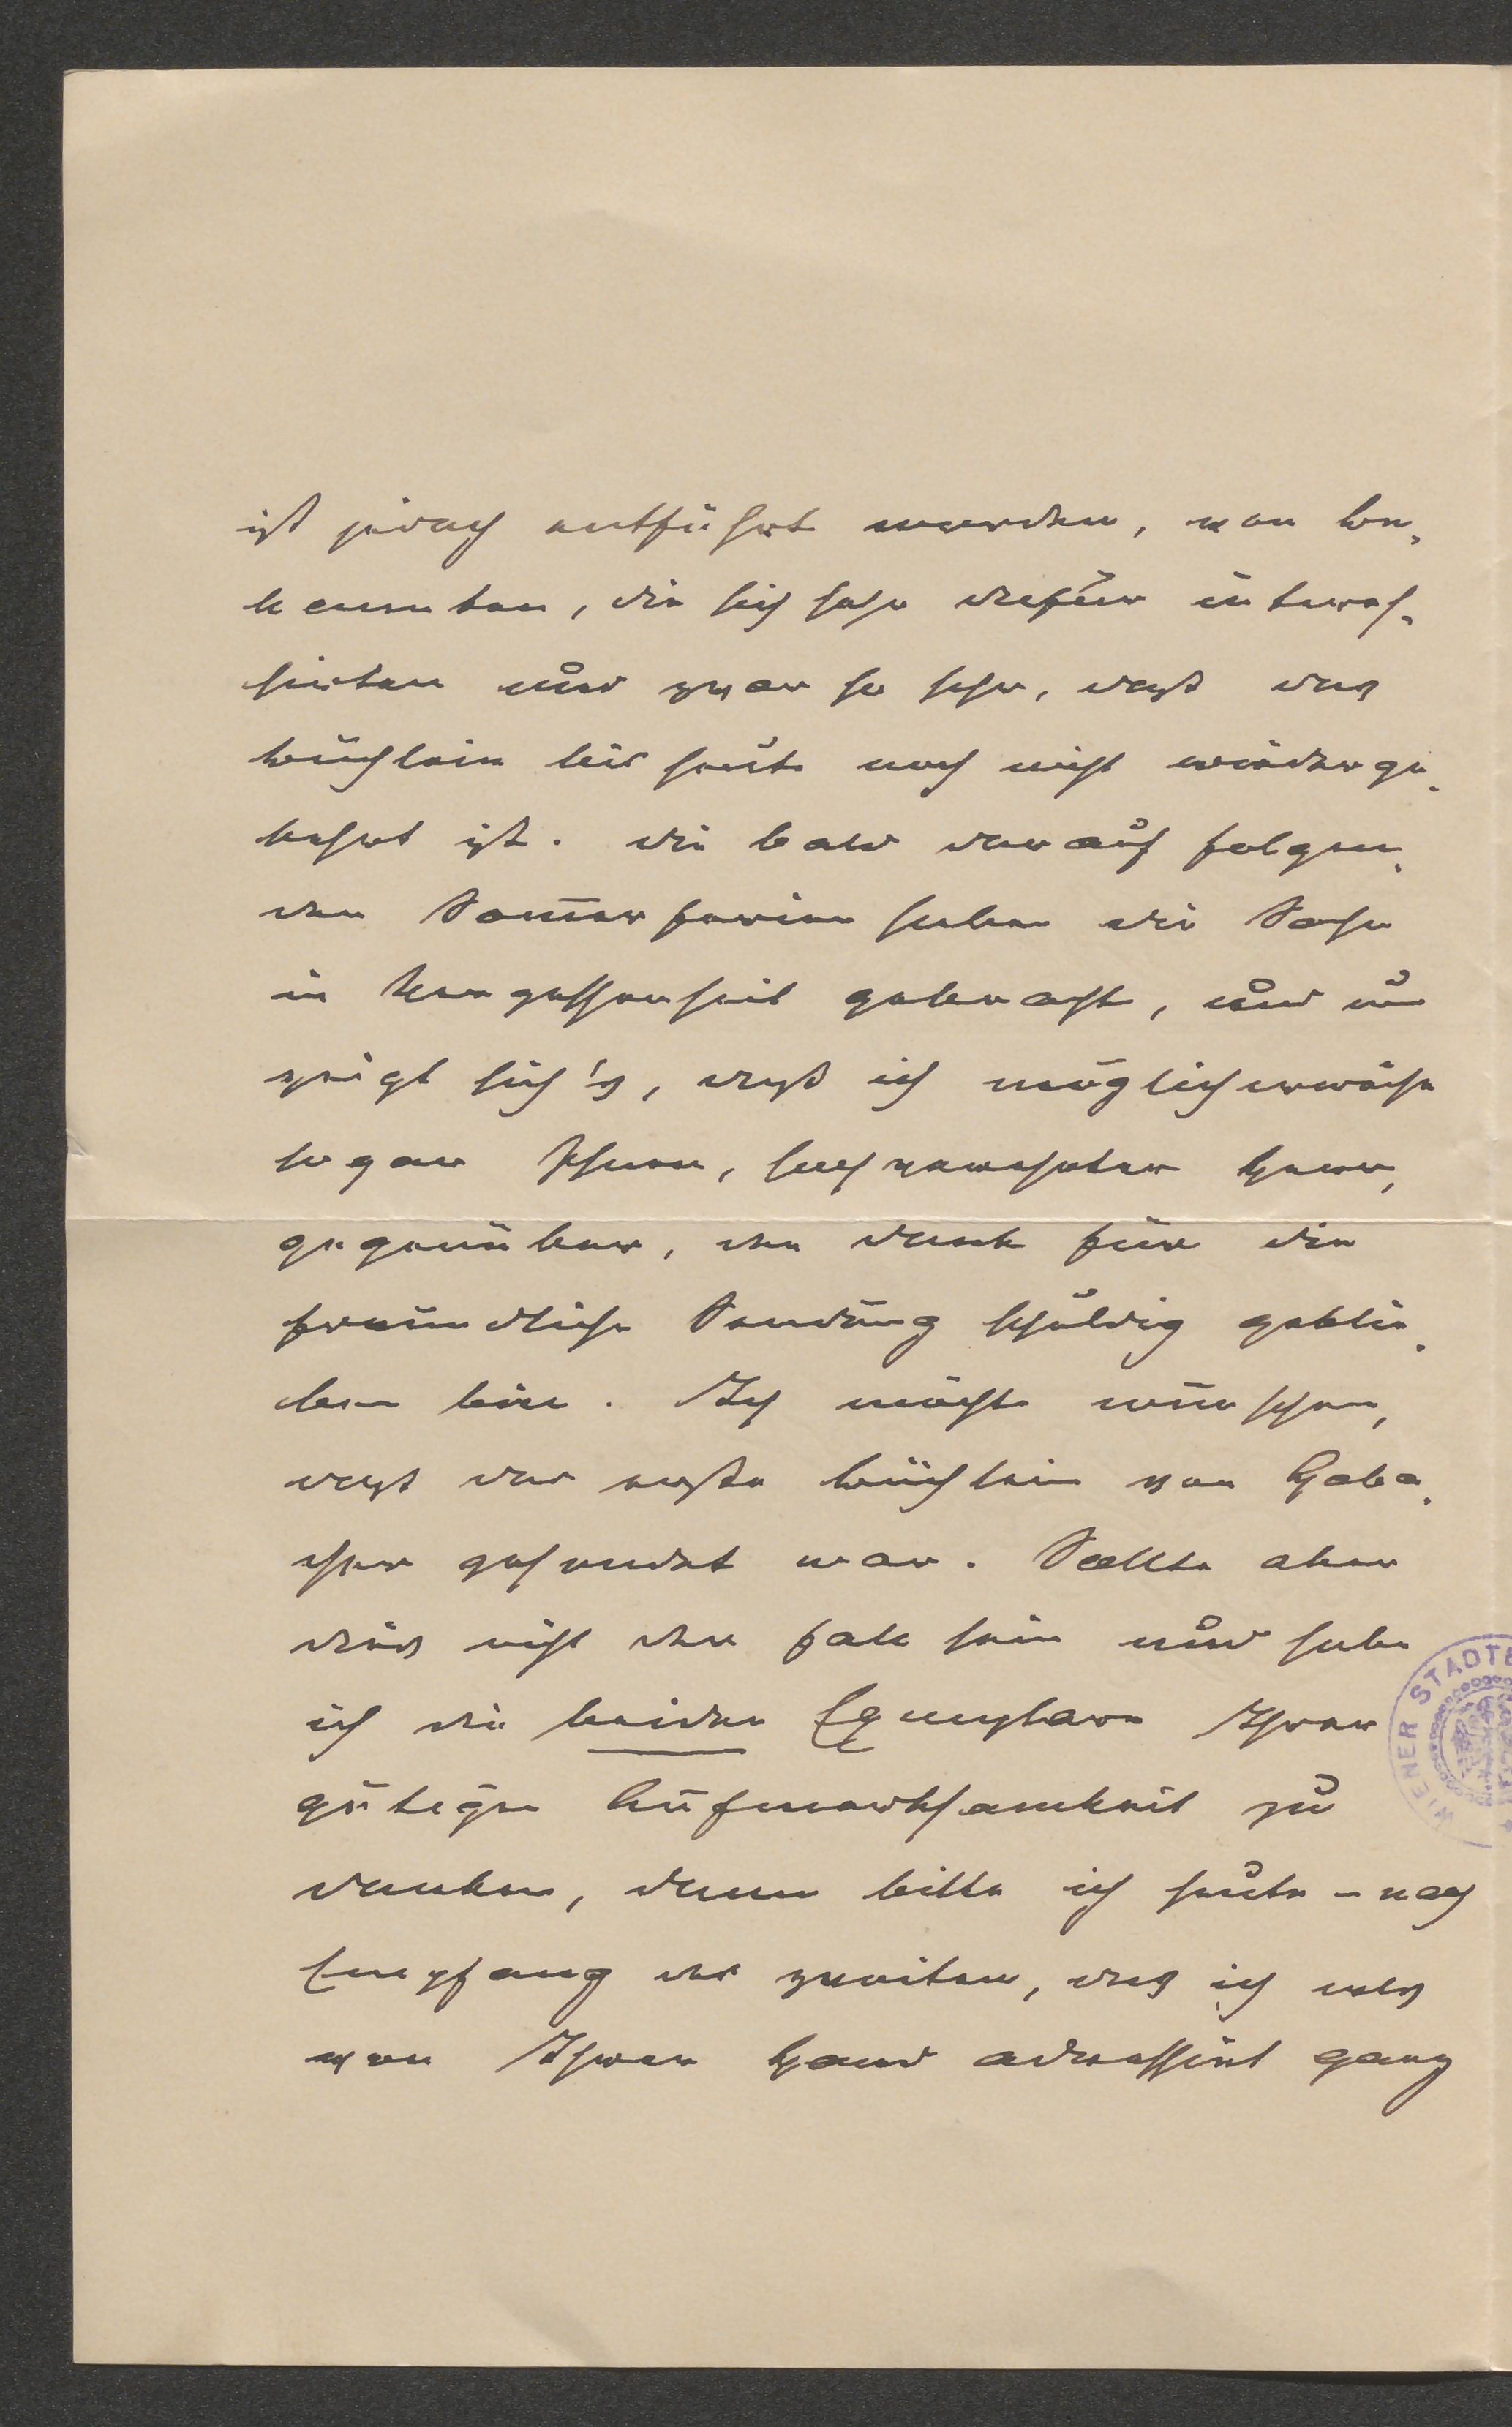 ist jedoch entführt worden, von Be-
kannten, die sich sehr dafür interes-
sirten und zwar so sehr, daß das
Büchlein bis heute noch nicht wiederge-
kehrt ist. Die bald darauf folgen-
den Sommerferien haben die Sache
in Vergessenheit gebracht, und nun
zeigt sich's, daß ich möglicherweise
sogar Ihnen, hochverehrter Herr,
gegenüber, den Dank für die
freundliche Sendung schuldig geblie-
ben bin. Ich möchte wünschen,
daß das erste Büchlein von
gesendet war. Sollte aber
dies nicht der Fall sein und habe
ich die beiden Exemplare Ihrer
gütigen Aufmerksamkeit zu
danken, dann bitte ich heute – nach
Empfang des zweiten, das ich als
von Ihrer Hand adressirt ganz
WIENER STADTB